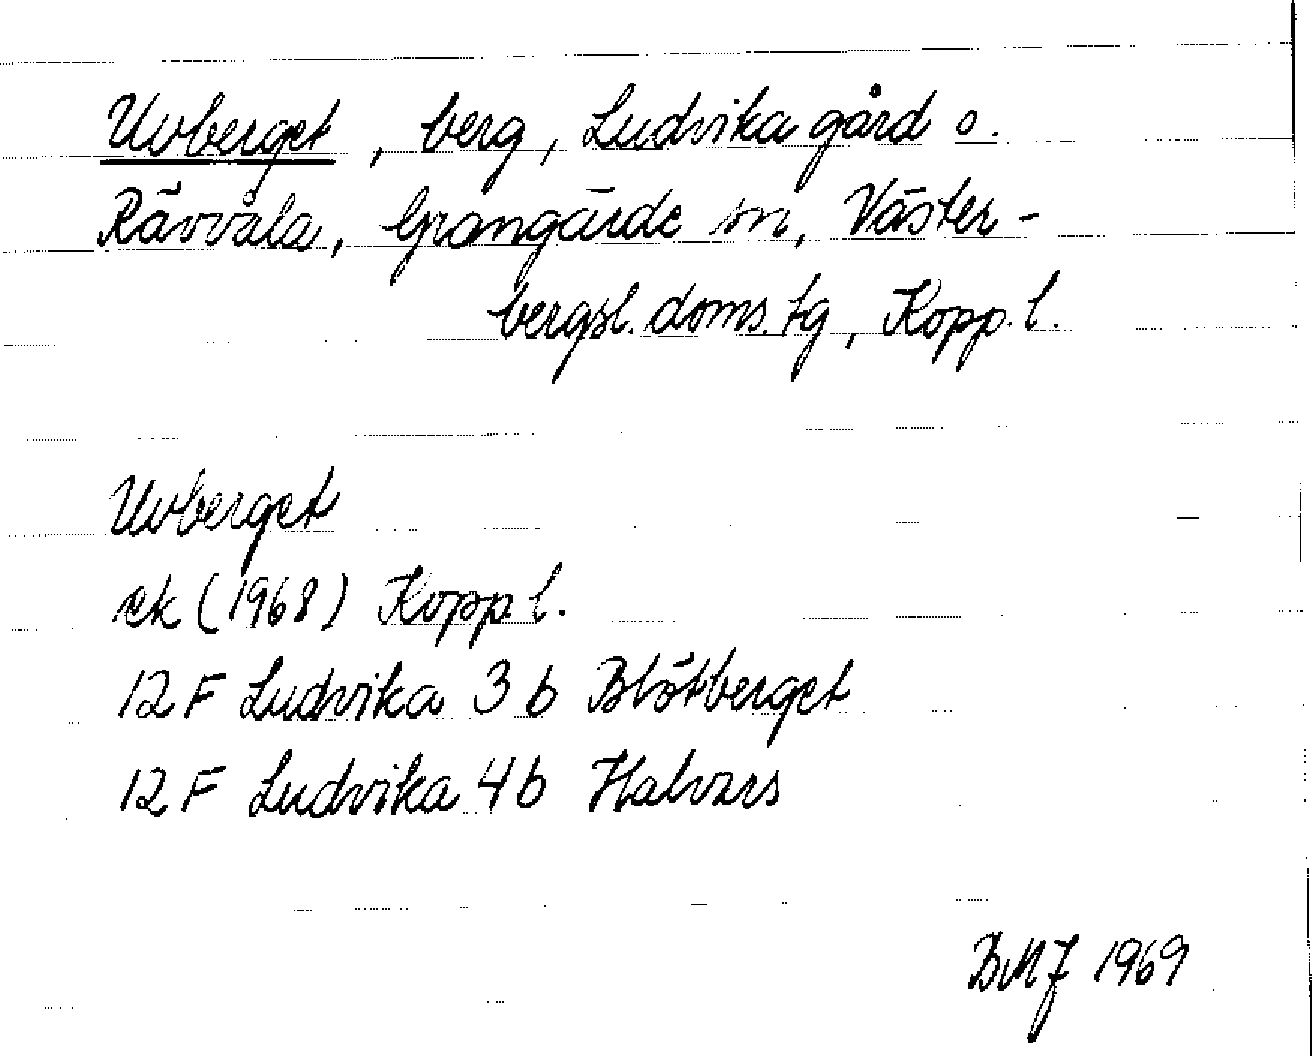 Uvberget, berg, Ludvika gård o.
Rävvåla, Grangärde sn, Väster-
bergsl. doms. tg, Kopp. l.
Uvberget
ek (1968) Kopp l.
12 F Ludvika 3 b Blötberget
12 F Ludvika 4 b Halvars
BMJ 1969